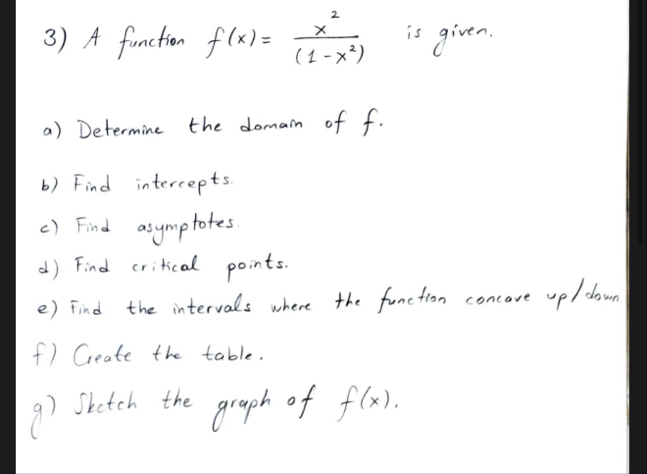 3) A function f(x) = x² / (1-x²) is given.
a) Determine the domain of f.
b) Find intercepts.
c) Find asymptotes.
d) Find critical points.
e) Find the intervals where the function concave up/down
f) Create the table.
g) Sketch the graph of f(x).